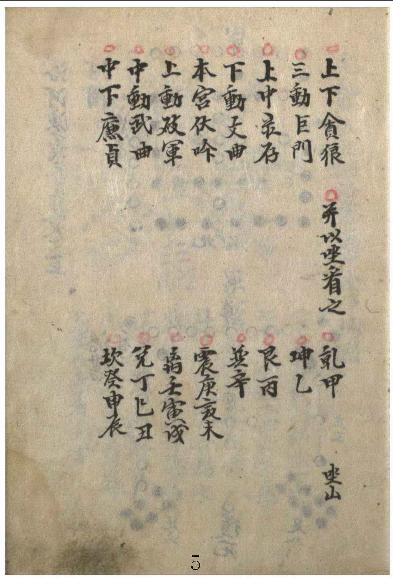 上下貪狼 并以坐看之 乾甲 坐山
三動巨門 坤乙
上中彔存 艮丙
下動文曲 巽辛
本宮伏吟 震庚亥未
上動破軍 离壬寅戌
中動武曲 兌丁巳丑
中下廉貞 坎癸申辰
5